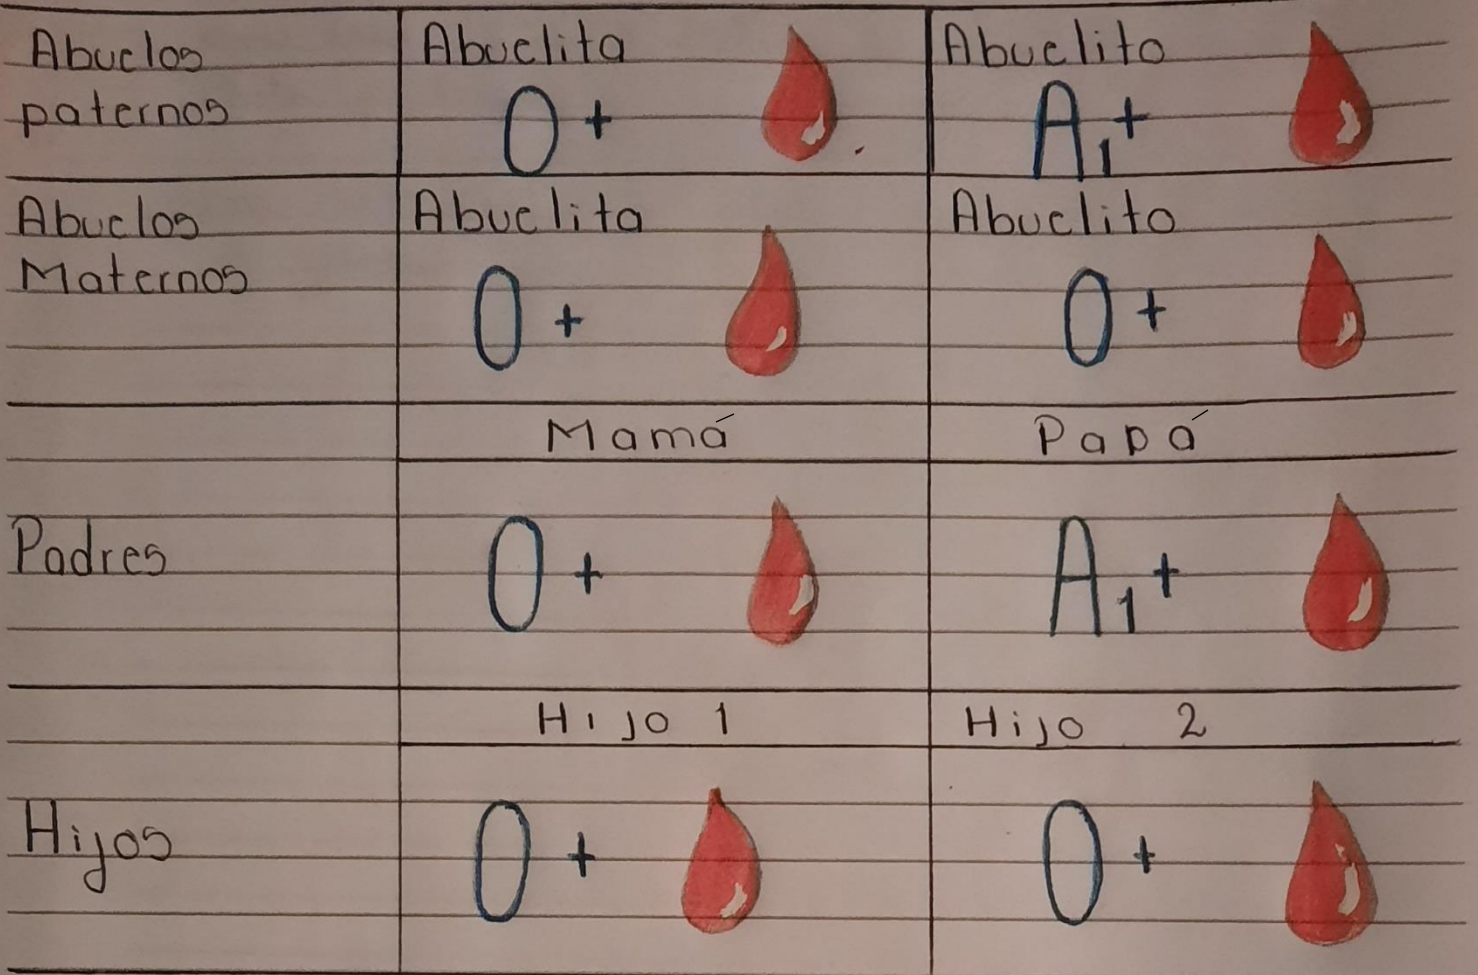 Abuelos
paternos
Abuelita
O +
Abuelito
A1+
Abuelos
Maternos
Abuelita
O +
Abuelito
O +
Mamá
Papá
Padres
O +
A1+
Hijo 1
Hijo 2
Hijos
O +
O +